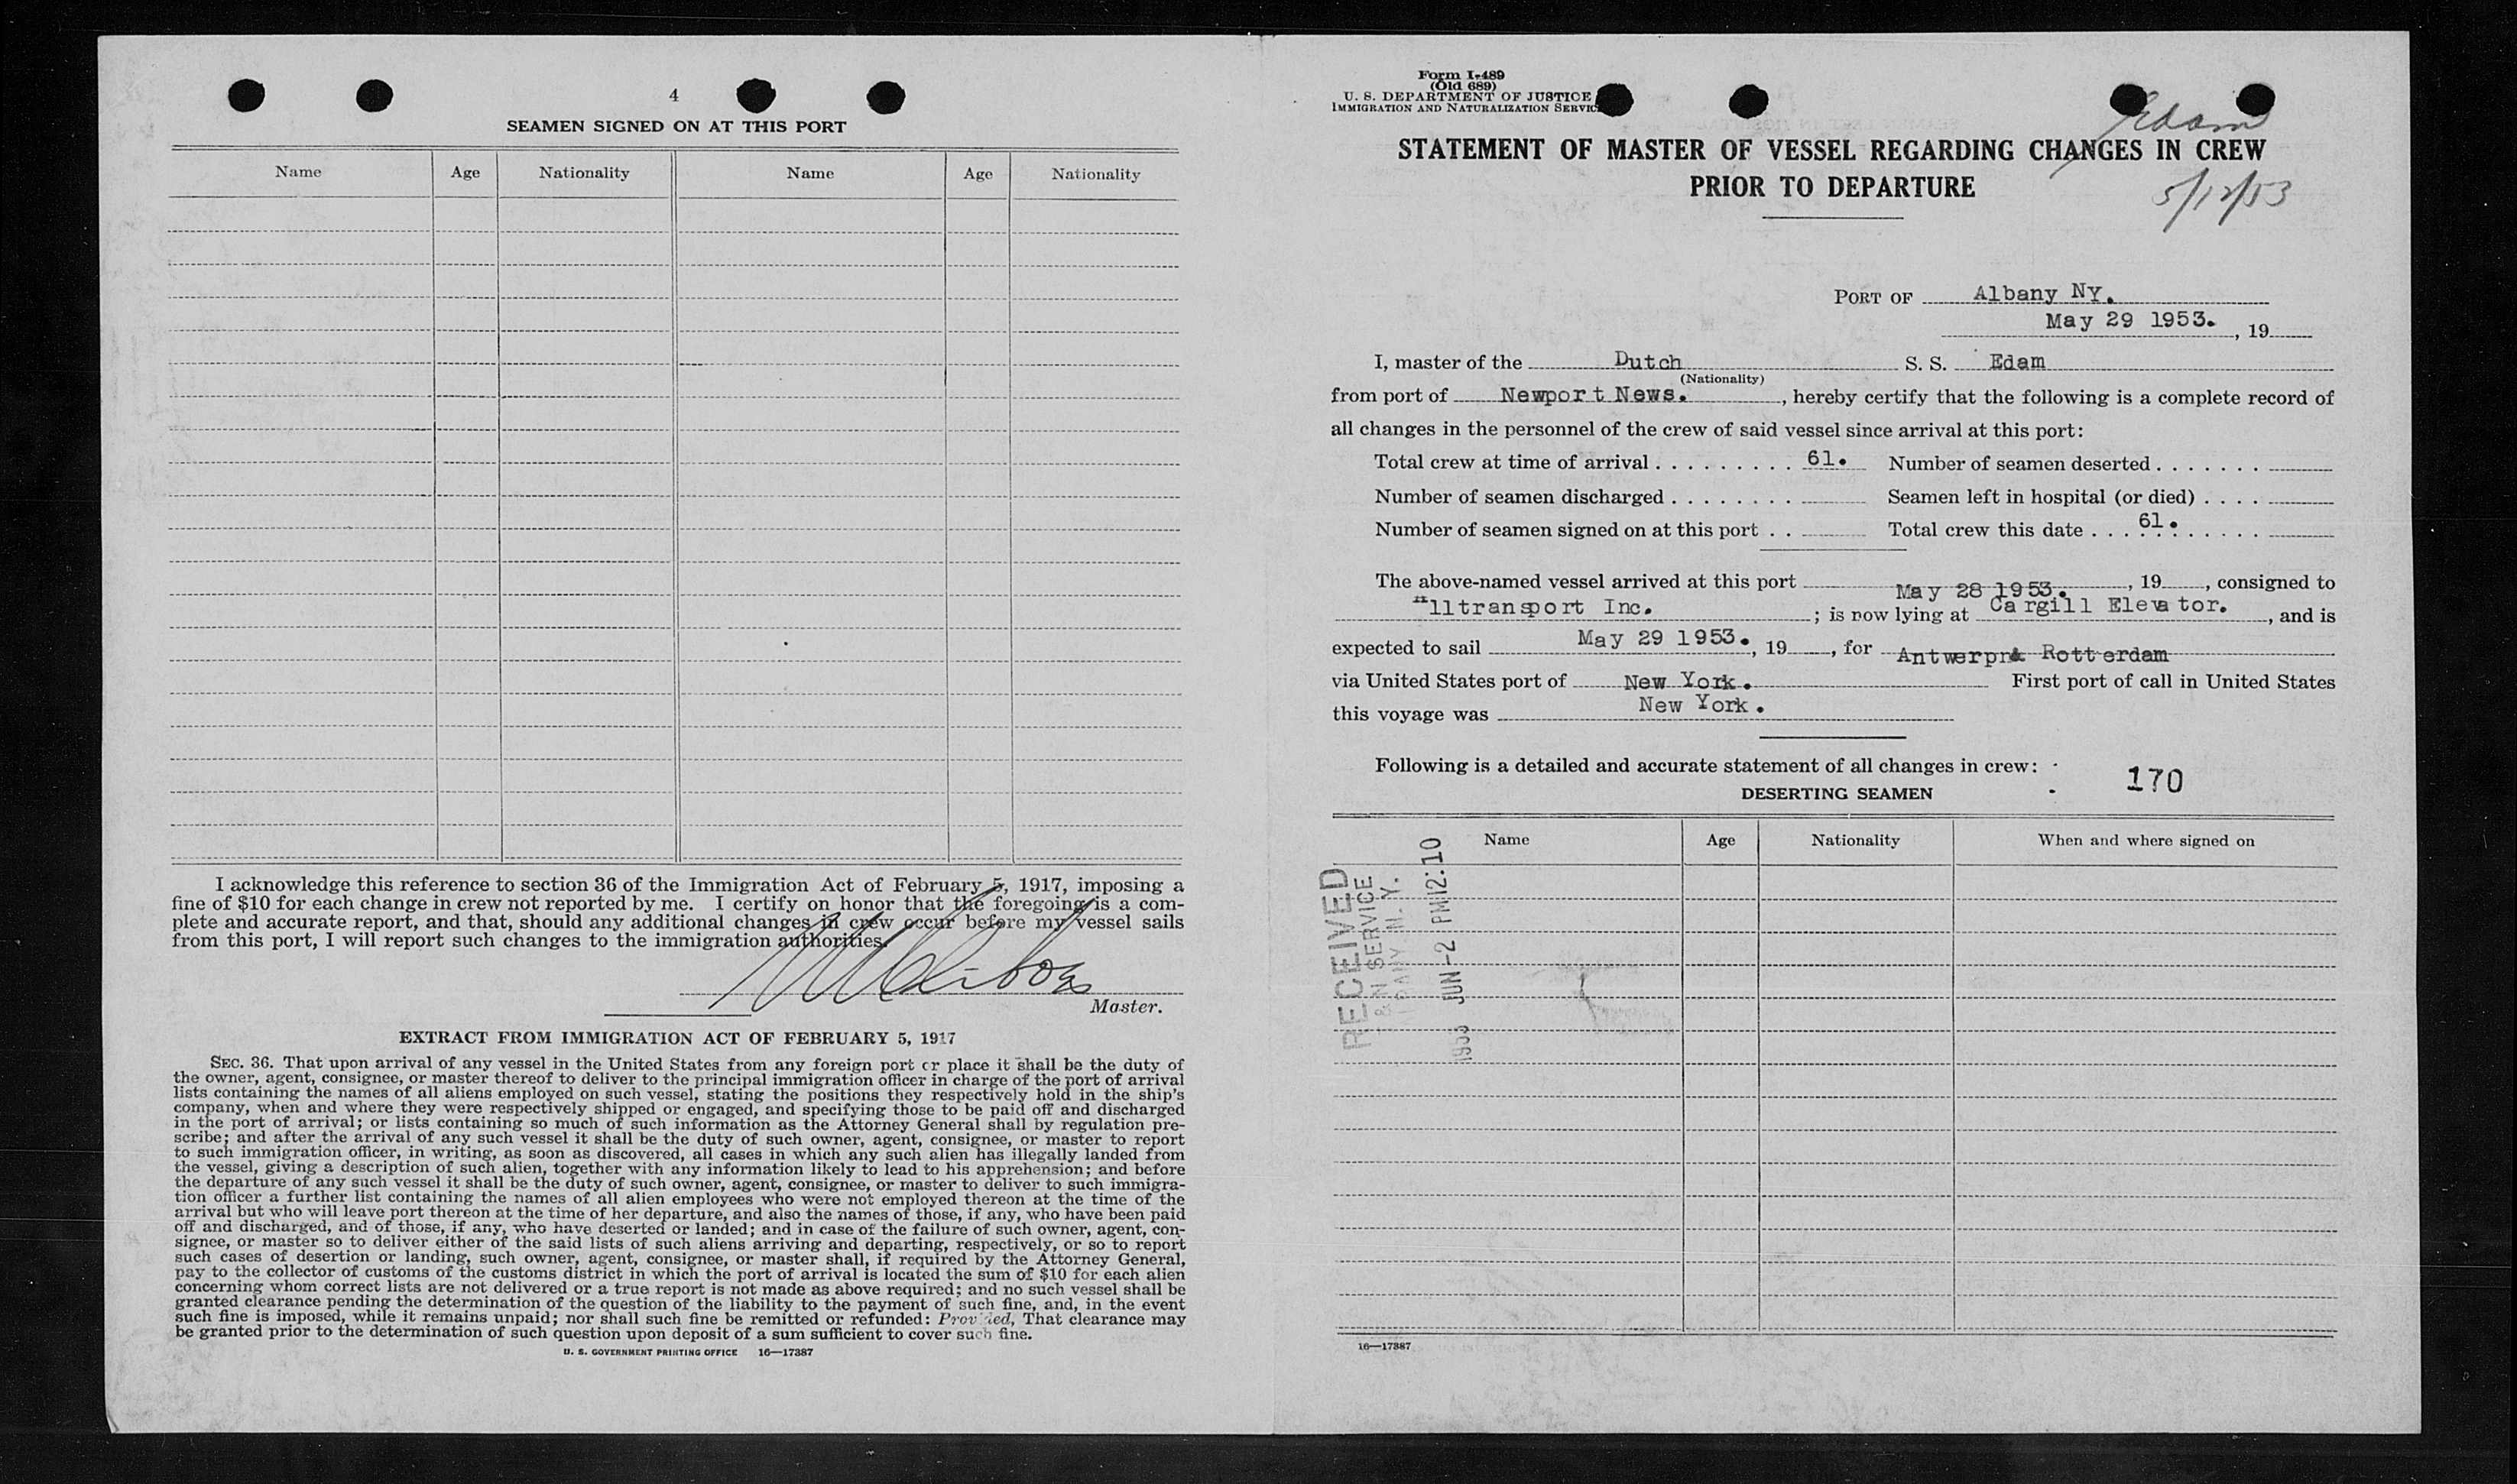 4
SEAMEN SIGNED ON AT THIS PORT
Name Age Nationality Name Age Nationality
I acknowledge this reference to section 36 of the Immigration Act of February 5, 1917, imposing a
fine of $10 for each change in crew not reported by me. I certify on honor that the foregoing is a com-
plete and accurate report, and that, should any additional changes in crew occur before my vessel sails
from this port, I will report such changes to the immigration authorities.
Master.
EXTRACT FROM IMMIGRATION ACT OF FEBRUARY 5, 1917
SEC. 36. That upon arrival of any vessel in the United States from any foreign port or place it shall be the duty of
the owner, agent, consignee, or master thereof to deliver to the principal immigration officer in charge of the port of arrival
lists containing the names of all aliens employed on such vessel, stating the positions they respectively hold in the ship's
company, when and where they were respectively shipped or engaged, and specifying those to be paid off and discharged
in the port of arrival; or lists containing so much of such information as the Attorney General shall by regulation pre-
scribe; and after the arrival of any such vessel it shall be the duty of such owner, agent, consignee, or master to report
to such immigration officer, in writing, as soon as discovered, all cases in which any such alien has illegally landed from
the vessel, giving a description of such alien, together with any information likely to lead to his apprehension; and before
the departure of any such vessel it shall be the duty of such owner, agent, consignee, or master to deliver to such immigra-
tion officer a further list containing the names of all alien employees who were not employed thereon at the time of the
arrival but who will leave port thereon at the time of her departure, and also the names of those, if any, who have been paid
off and discharged, and of those, if any, who have deserted or landed; and in case of the failure of such owner, agent, con-
signee, or master so to deliver either of the said lists of such aliens arriving and departing, respectively, or so to report
such cases of desertion or landing, such owner, agent, consignee, or master shall, if required by the Attorney General,
pay to the collector of customs of the customs district in which the port of arrival is located the sum of $10 for each alien
concerning whom correct lists are not delivered or a true report is not made as above required; and no such vessel shall be
granted clearance pending the determination of the question of the liability to the payment of such fine, and, in the event
such fine is imposed, while it remains unpaid; nor shall such fine be remitted or refunded: Provided, That clearance may
be granted prior to the determination of such question upon deposit of a sum sufficient to cover such fine.
U. S. GOVERNMENT PRINTING OFFICE 16—17387
Form I-489
(Old 689)
U. S. DEPARTMENT OF JUSTICE
IMMIGRATION AND NATURALIZATION SERVICE
Edam
STATEMENT OF MASTER OF VESSEL REGARDING CHANGES IN CREW
PRIOR TO DEPARTURE
5/12/53
PORT OF Albany NY.
May 29 1953. , 19
I, master of the Dutch S. S. Edam
(Nationality)
from port of Newport News. , hereby certify that the following is a complete record of
all changes in the personnel of the crew of said vessel since arrival at this port:
Total crew at time of arrival . . . . . . . . . 61. Number of seamen deserted . . . . . . .
Number of seamen discharged . . . . . . . . Seamen left in hospital (or died) . . . .
Number of seamen signed on at this port . . Total crew this date . . . 61. . . . . . .
The above-named vessel arrived at this port May 28 1953. , 19 , consigned to
Alltransport Inc. ; is now lying at Cargill Elevator. , and is
expected to sail May 29 1953. , 19 , for Antwerp & Rotterdam
via United States port of New York. First port of call in United States
this voyage was New York.
Following is a detailed and accurate statement of all changes in crew:
170
DESERTING SEAMEN
Name Age Nationality When and where signed on
RECEIVED
I & N SERVICE
ALBANY N. Y.
1953 JUN -2 PM 12:10
16—17387